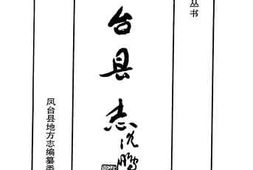 丛书
台县志
沈鹏
凤台县地方志编纂委